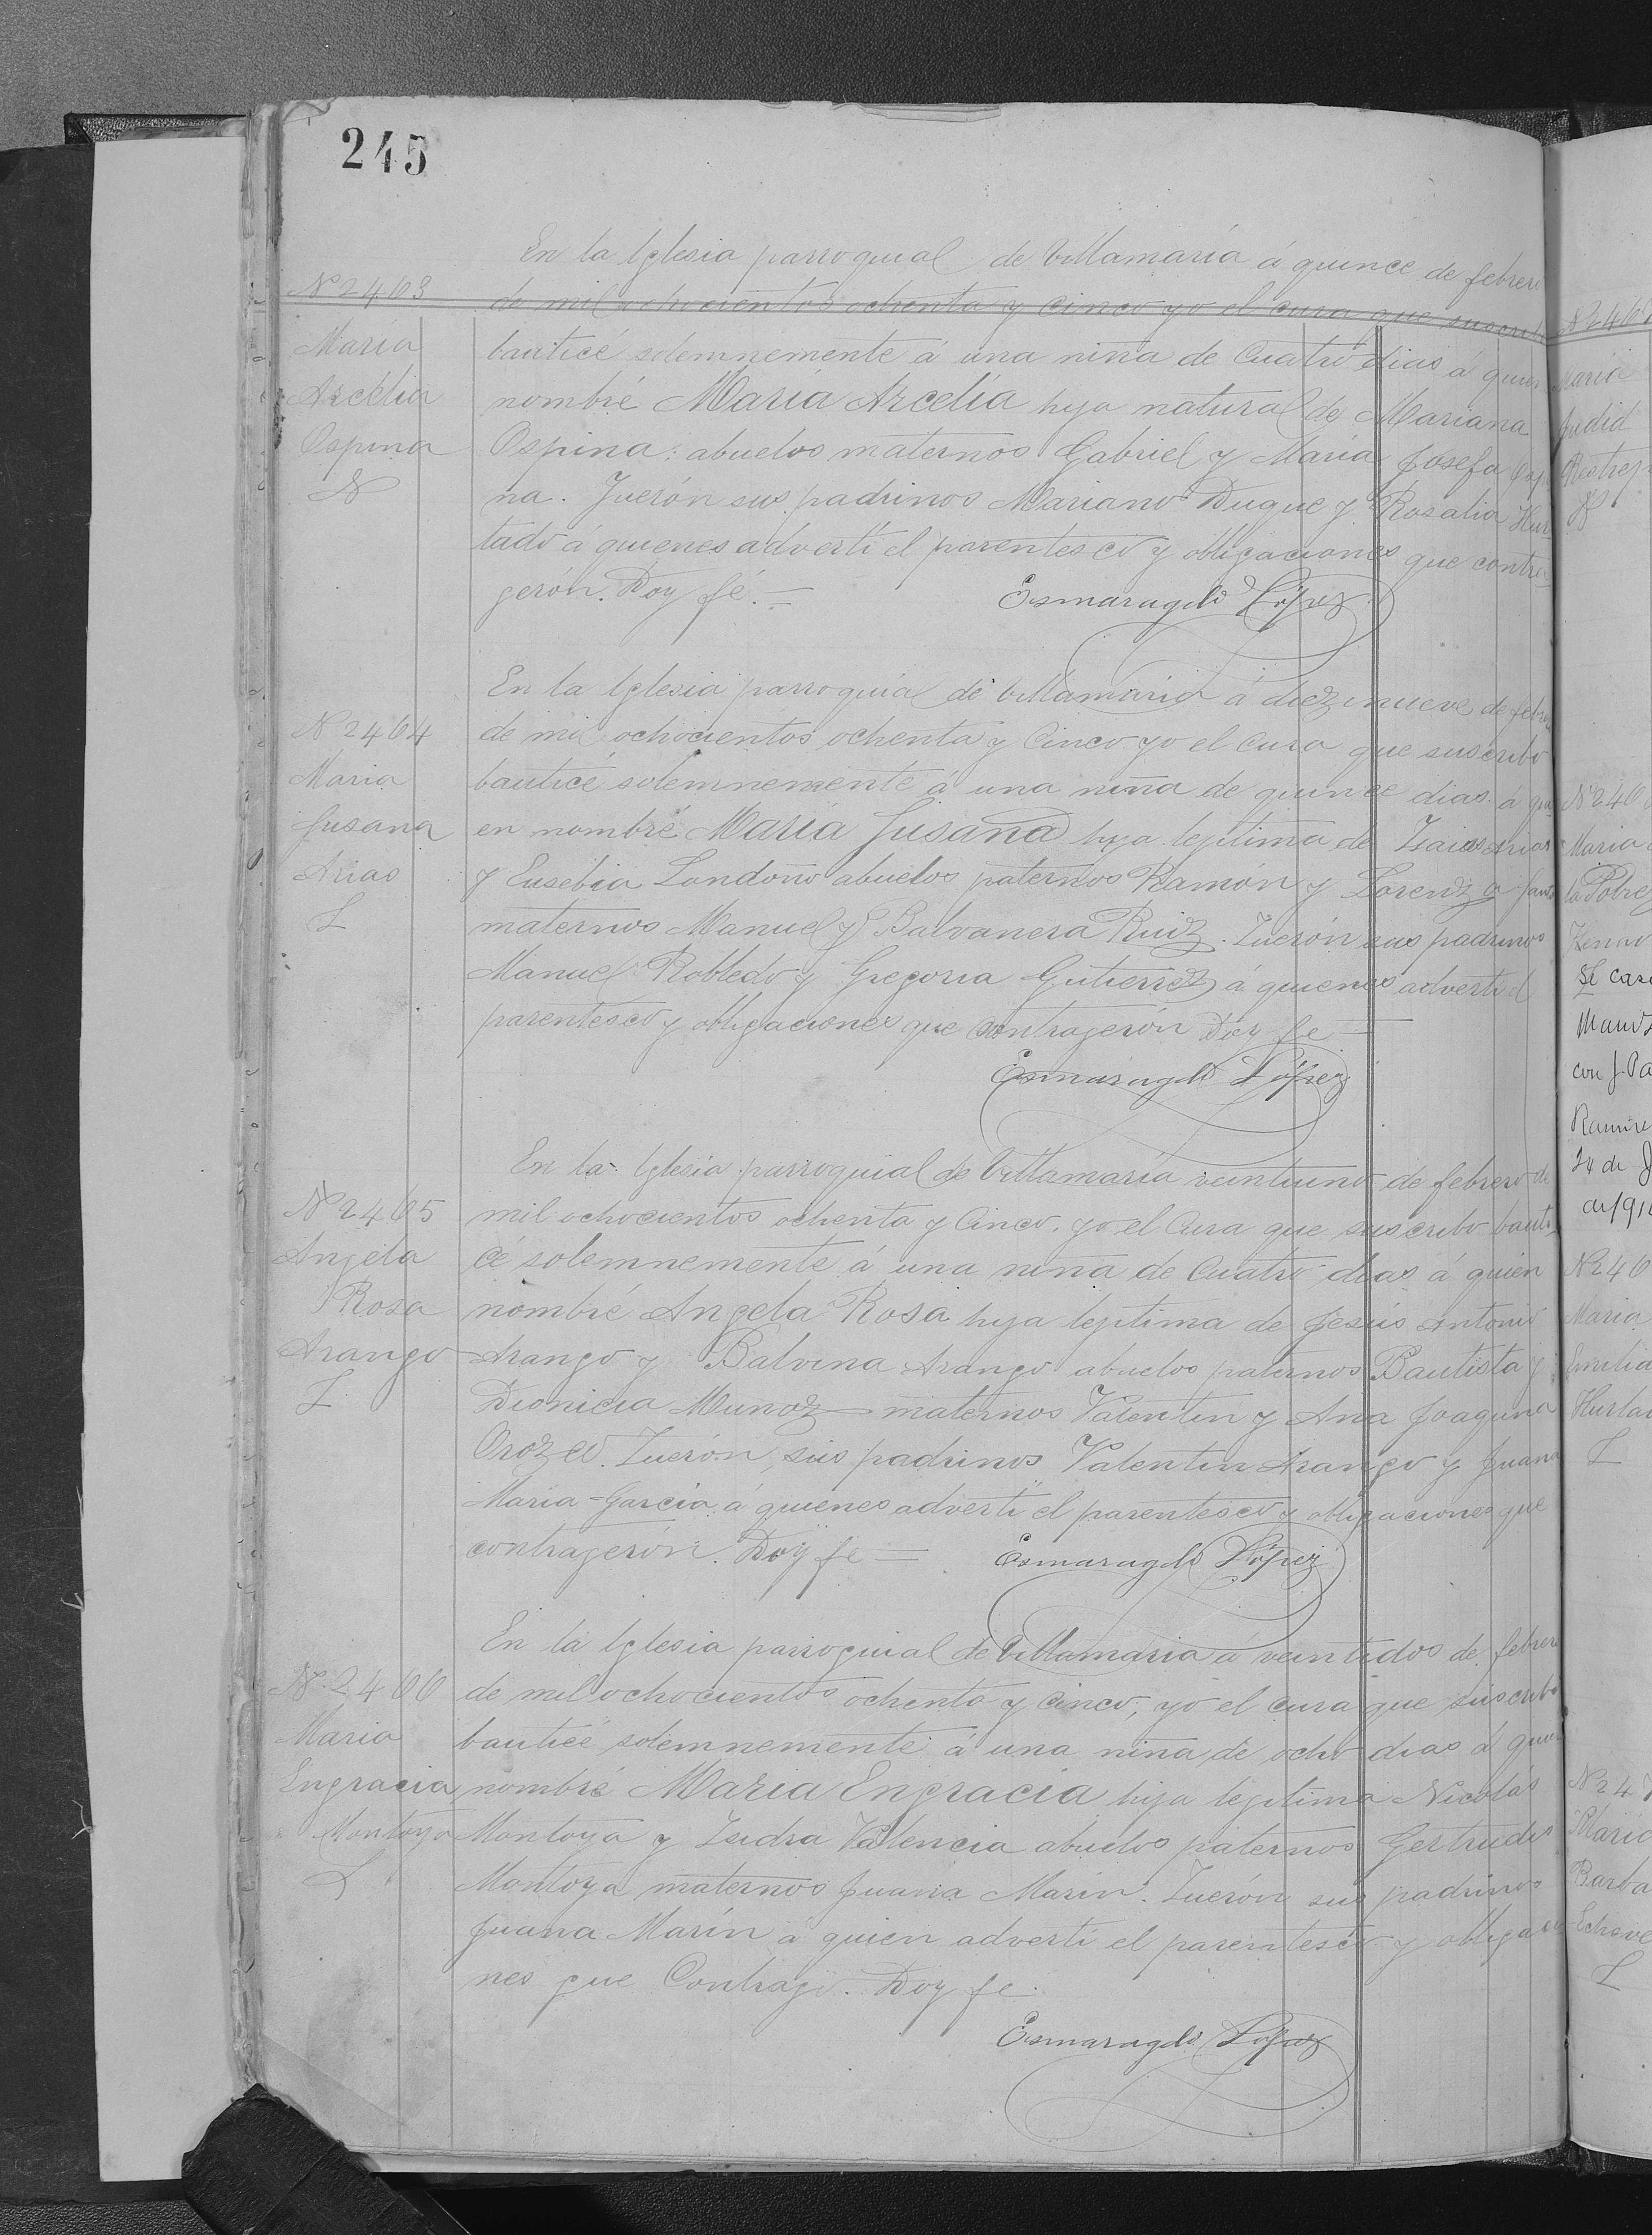 245
En la Iglesia parroquial de Villamaría á quince de febrero
Nº 2463
de mil ochocientos ochenta y cinco yo el cura que suscribo
Maria
Arcelia
Ospina
N
bauticé solemnemente á una niña de cuatro dias á quien
nombré María Arcelia hija natural de Mariana
Ospina: abuelos maternos Gabriel y María Josefa Ospi
na. Fuerón sus padrinos Mariano Duque y Rosalia Hur
tado á quienes advertí el parentesco y obligaciones que contra
gerón. Doy fé.=
Esmaragdo López
En la Iglesia parroquial de Villamaria á diez i nueve de febrero
Nº 2464
Maria
Susana
Arias
L
de mil ochocientos ochenta y cinco yo el cura que suscribo
bauticé solemnemente á una niña de quince dias á qui
en nombré María Susana hija legitima de Isaias Arias
y Eusebia Londoño abuelos paternos Ramón y Lorenza
maternos Manuel y Balvanera Ruiz. Fuerón sus padrinos
Manuel Robledo y Gregoria Gutierrez á quienes advertí el
parentesco y obligaciones que contragerón Doy fe=
Esmaragdo López
En la Iglesia parroquial de Villamaría veintiuno de febrero de
Nº 2465
Angela
Rosa
Arango
L
mil ochocientos ochenta y cinco, yo el cura que suscribo bauti
cé solemnemente á una niña de cuatro dias á quién
nombré Angela Rosa hija legitima de Jesús Antonio
Arango y Balvina Arango abuelos paternos Bautista y
Dionicia Muñoz maternos Valentin y Ana Joaquina
Orozco. Fuerón sus padrinos Valentin Arango y Juana
María García á quienes advertí el parentesco y obligaciones que
contragerón. Doy fe=
Esmaragdo López
En la Iglesia parroquial de Villamaria á veintidos de febrero
Nº 2466
Maria
Engracia
Montoya
L
de mil ochocientos ochenta y cinco, yo el cura que suscribo
bauticé solemnemente á una niña de ocho dias á quien
nombré María Engracia hija legitima Nicolás
Montoya y Isidra Valencia abuelos paternos Gertrudis
Montoya maternos Juana Marin. Fuerón sus padrinos
Juana Marín á quien advertí el parentesco y obligacio
nes que Contrajo. Doy fe.
Esmaragdo López
María
Judid
Restrepo
Maria
Se casó
con J. Pa
24 de J
Nº 246
Maria
Emilia
Hurta
L
Nº 247
Maria
Barba
Echeve
L